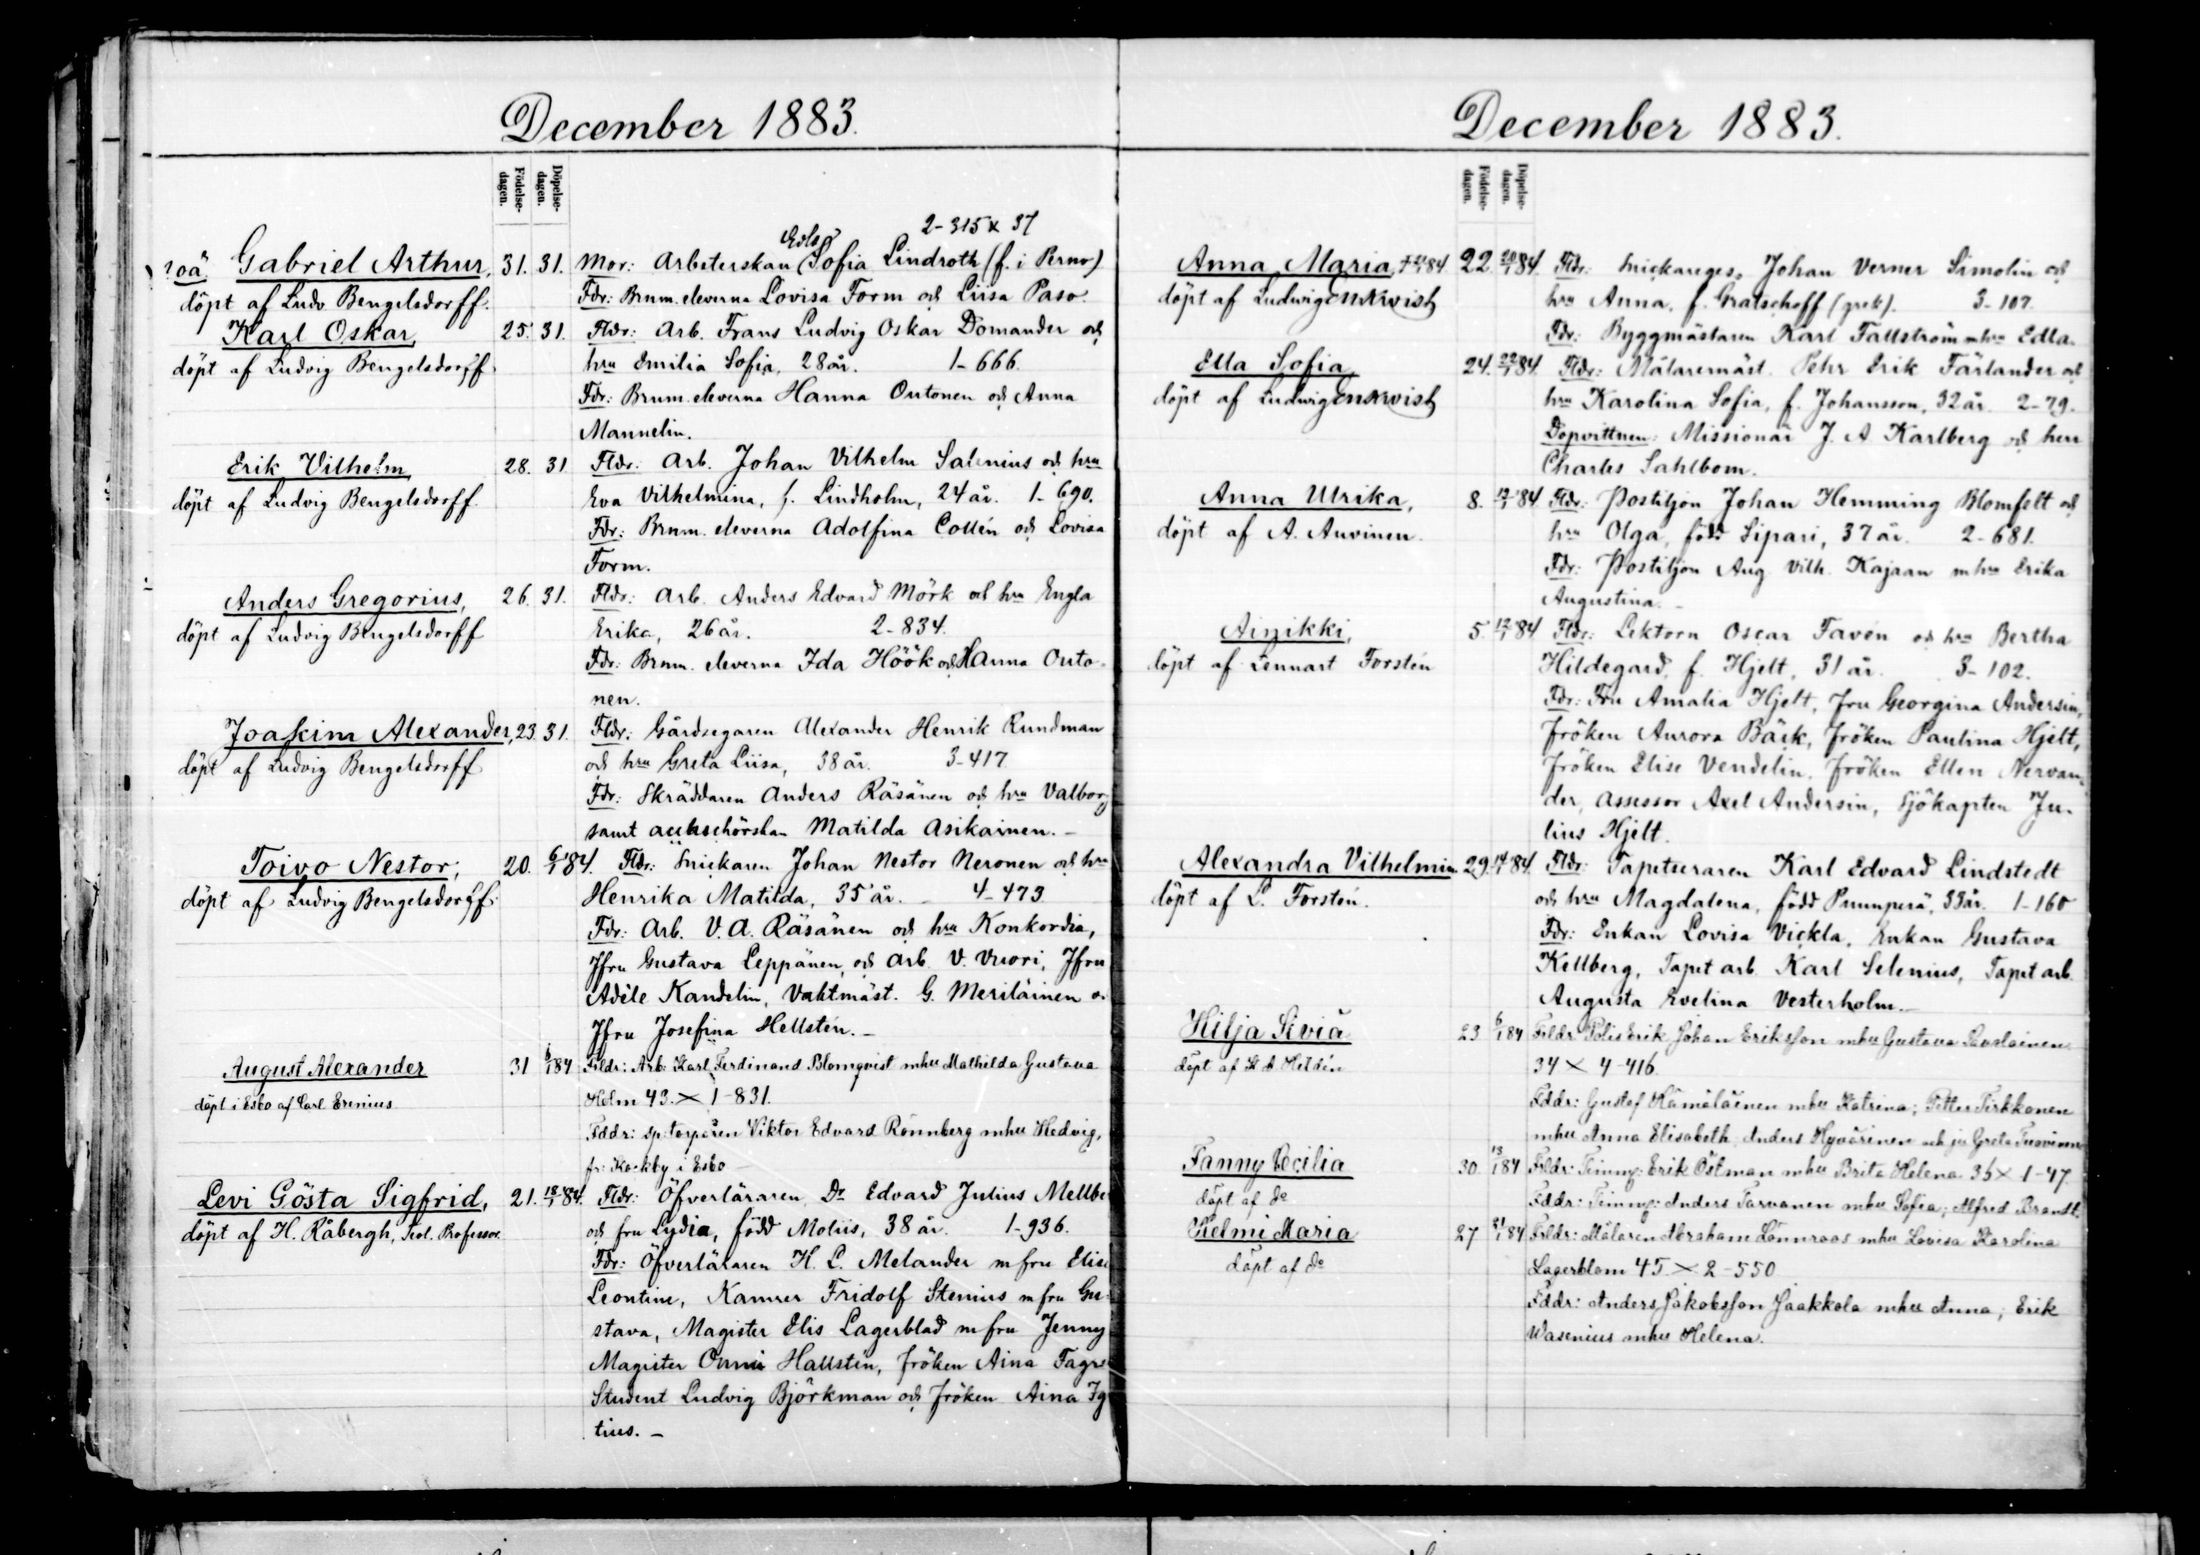 December 1883.
Födelse-dagen.
Döpelse-dagen.
2-315 x 37
oä Gabriel Arthur, 31. 31. Mor: Arbeterskan Sofia Lindroth (f. i Perno)
döpt af Ludv Bengelsdorff. Fdr: Brnm. eleverna Lovisa Form och Liisa Paso.
Karl Oskar, 25. 31. Fldr: Arb. Frans Ludvig Oskar Domander och
döpt af Ludvig Bengelsdorff hru Emilia Sofia, 28 år. 1-666.
Fdr: Brnm. eleverna Hanna Outonen och Anna
Mannelin.
Erik Vilhelm, 28. 31. Fldr: Arb. Johan Vilhelm Salenius och hru
döpt af Ludvig Bengelsdorff. Eva Vilhelmina, f. Lindholm, 24 år. 1-690.
Fdr: Brnm. eleverna Adolfina Collén och Lovisa
Form.
Anders Gregorius, 26. 31. Fldr: Arb. Anders Edvard Mörk och hru Engla
döpt af Ludvig Bengelsdorff Erika, 26 år. 2-834.
Fdr: Brnm. eleverna Ida Höök och Hanna Outo-
nen.
Joakim Alexander, 23. 31. Fldr: Gårdsegaren Alexander Henrik Rundman
döpt af Ludvig Bengelsdorff och hru Greta Liisa, 38 år. 3-417
Fdr: Skräddaren Anders Räsänen och hru Valborg
samt Matilda Asikainen.-
Toivo Nestor, 20. 6/1 84. Fldr: Snickaren Johan Nestor Neronen och hru
döpt af Ludvig Bengelsdorff. Henrika Matilda, 35 år. 4-473
Fdr: Arb. V. A. Räsänen och hru Konkordia,
Jfru Gustava Leppänen, och Arb. V. Vuori, Jfru
Adèle Kandelin, Vaktmäst. G. Meriläinen o.
Jfru Josefina Hellstén.-
August Alexander 31 6/1 84 Frldr: Arb. Karl Ferdinand Blomqvist mhu Mathilda Gustava
döpt i Esbo af Carl Erenius Holm 43. x 1-831.
Fddr: sp. torparen Viktor Edvard Rönnberg mhu Hedvig,
fr: Kackby i Esbo -
Levi Gösta Sigfrid, 21. 18/1 84. Fldr: Öfverläraren Dr Edvard Julius Mellbe
döpt af H. Råbergh, Teol. Professor. och fru Lydia, född Molus, 38 år. 1-936.
Fdr: Öfverläraren H. L. Melander m fru Elise
Leontine, Kamrer Fridolf Stenius m fru Gu-
stava, Magister Elis Lagerblad m fru Jenny
Magister Onni Hallstén, fröken Aina Fagr
Student Ludvig Björkman och fröken Aina Ig
tius. -
December 1883.
Födelse-dagen.
Döpelse-dagen.
Anna Maria, 22 84. Fldr: Snickareges. Johan Verner Simolin och
döpt af Ludwig Enkwist hru Anna, f. Gratschoff (grek). 3-107.
Fdr: Byggmästaren Karl Fallström m hru Edla.
Ella Sofia, 24. 22/1 84. Fldr: Målaremäst. Pehr Erik Färlander och
döpt af Ludwig Enkwist hru Karolina Sofia, f. Johansson, 32 år. 2-79.
Dopvittnen: Missionär J. A Karlberg och herr
Charles Sahlbom.
Anna Ulrika, 8. 84. Fldr: Postiljon Johan Hemming Blomfelt och
döpt af A. Auvinen. hru Olga, född Sipari, 37 år. 2-681.
Fdr: Postiljon Aug. Vilh. Kajaan m hru Erika
Augustina. -
Ainikki, 5. 12/1 84 Fldr: Lektorn Oscar Tavén och hru Bertha
döpt af Lennart Forstén Hildegard, f. Hjelt, 31 år. 3-102.
Fdr: Fru Amalia Hjelt, Fru Georgina Andersin,
fröken Aurora Bäck, fröken Paulina Hjelt,
fröken Elise Vendelin, fröken Ellen Nervan-
der, Assessor Axel Andersin, Sjökapten Ju-
lius Hjelt.
Alexandra Vilhelmin 29. 14/1 84. Fldr: Tapetseraren Karl Edvard Lindstedt
döpt af L. Forstén. och hru Magdalena, född Puunperä, 33 år. 1-160
Fdr: Enkan Lovisa Vickla, Enkan Gustava
Kellberg, Tapet arb. Karl Selenius, Tapet arb.
Augusta Evelina Vesterholm.-
Hilja Siviä 23 6/1 84 Frldr: Polis Erik Johan Eriksson mhu Gustava
döpt af K A Hildén 34 x 4-416.
Fddr: Gustaf Hämäläinen mhu Katrina; Petter Pirkkonen
mhu Anna Elisabeth, Anders Hyvärinen och
Fanny Cecilia 30. 13/1 84 Frldr: Timmg: Erik Östman mhu Brita Helena 36 x 1-47
döpt af do Fddr: Timmg: Anders Tarvanen mhu Sofia; Alfred Brandt.
Helmi Maria 27 21/1 84 Frldr: Målaren Abraham Lönnroos mhu Lovisa Karolina
döpt af do Lagerblom 45. x 2-550
Fddr: Anders Jakobsson Jaakkola mhu Anna; Erik
Wasenius mhu Helena.